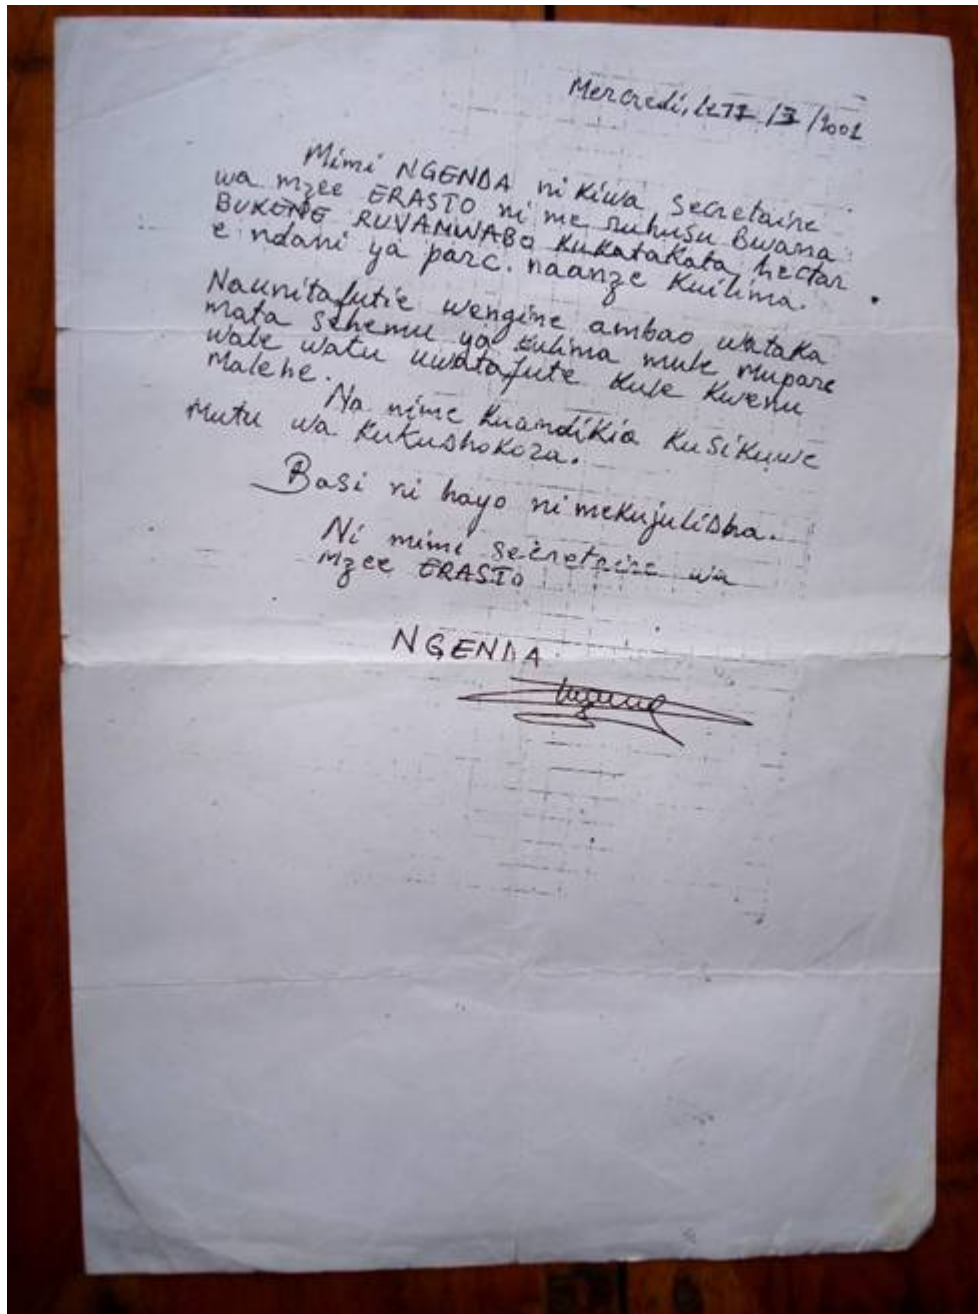 Mercredi, le 77 /3 /2001
Mimi NGENDA ni Kiwa secretaire
wa mzee ERASTO ni me ruhusu Bwana
BUKENE RUVAMWABO Kukatakata hectar
e ndani ya parc. naanze Kuilima.
Naunitafutie wengine ambao wataka
mata sehemu ya kulima mule Muparc
wale watu uwatafute kule Kwenu
Malehe.
Na nime Kuandikia Kusikuwe
Mutu wa Kukushokoza.
Basi ni hayo ni mekujulisha.
Ni mimi secretaire wa
Mzee ERASTO
NGENDA